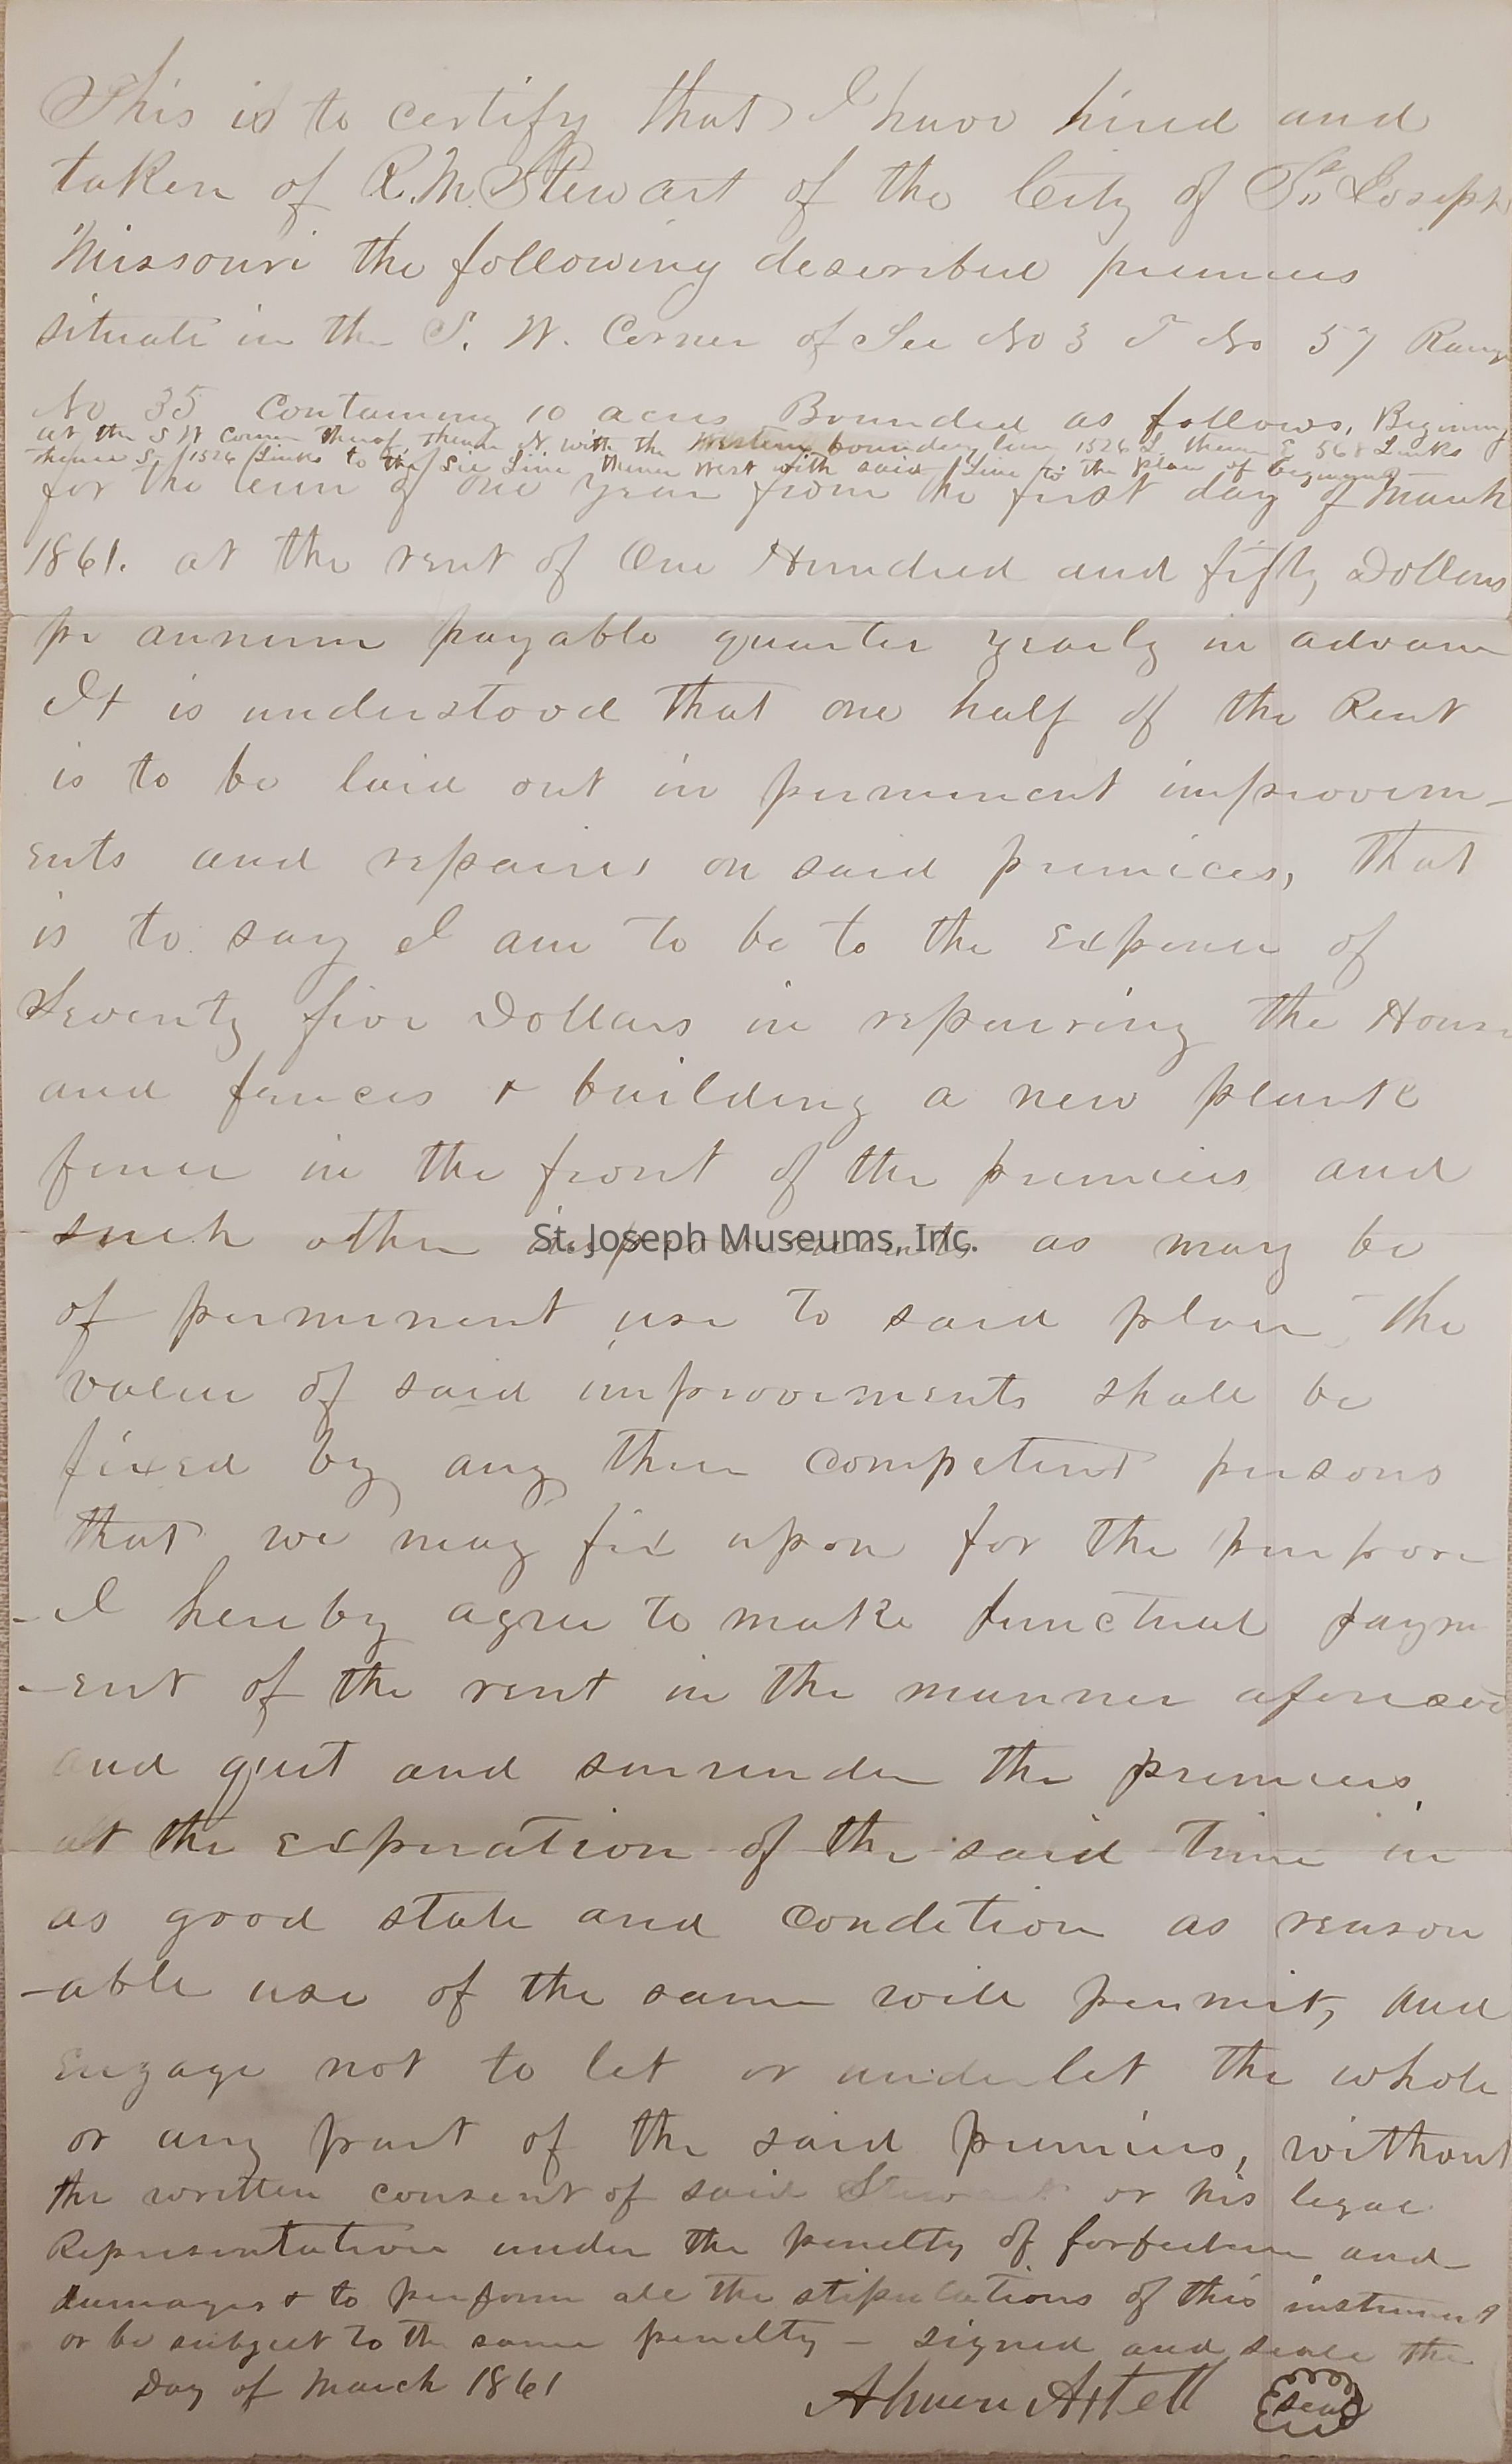 This is to certify that I have hired and
taken of R. M. Stewart of the City of St. Joseph
Missouri the following described premices
situate in the S. W. Corner of Sec No 3 T No 57 Range
No 35 Containing 10 acres Bounded as follows, Begining
at the S W Corner thereof thence N with the Western boundary line 1526 L. thence E 568 Links
thence S. 1526 Links to the Sec Line thence West with said Line to the place of begining
for the term of one year from the first day of March
1861. at the rent of One Hundred and fifty Dollars
pr annum payable quarter yearly in advance
It is understood that one half of the Rent
is to be laid out in perminent improvem-
ents and repairs on said premices, that
is to say I am to be to the expence of
Seventy five Dollars in repairing the House
and fences + building a new plank
fence in the front of the premices and
such other improvements as may be
St. Joseph Museums, Inc.
of perminent use to said place the
value of said improvements shall be
fixed by any three competent persons
that we may fix upon for the purpose
- I hereby agree to make punctual paym
-ent of the rent in the manner aforesaid
and quit and surrender the premices,
at the expiration of the said time in
as good state and condition as reason
-able use of the same will permit, and
engage not to let or underlet the whole
or any part of the said premices, without
the written consent of said Stewart or his legal
Representative under the penelty of forfeiture and
damages + to perform all the stipulations of this instrument
or be subject to the same penelty - signed and seale the
Day of March 1861
Astell
Seal